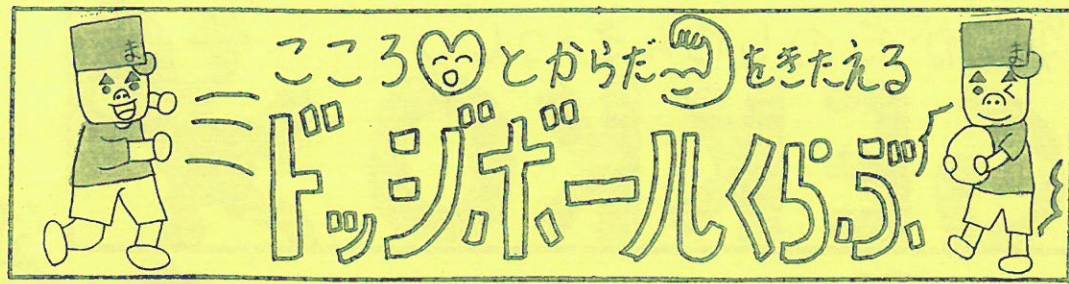 こころとからだをきたえる
ドッジボールくらぶ
ま
ま